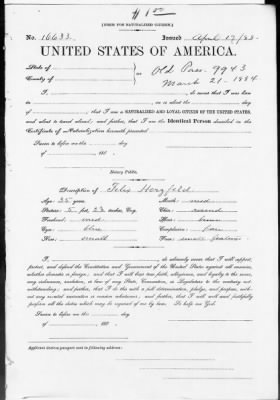 $1.00
[FORM FOR NATURALIZED CITIZEN.]
No. 16633. Issued April 17/88
UNITED STATES OF AMERICA.
State of
County of
ss Old Pass. 9943
March 21. 1884
I, , do swear that I was born
in on or about the day
of , ; that I am a NATURALIZED AND LOYAL CITIZEN OF THE UNITED STATES,
and about to travel abroad; and further, that I am the Identical Person described in the
Certificate of Naturalization herewith presented.
Sworn to before me this day
of , 188 .
Notary Public.
Description of Felix Herzfeld
Age: 25 years Mouth: med
Stature: 5 feet 2½ inches, Eng. Chin: round
Forehead: med Hair: brown
Eyes: blue Complexion: fair
Nose: small Face: small features
I, , do solemnly swear that I will support,
protect, and defend the Constitution and Government of the United States against all enemies,
whether domestic or foreign; and that I will bear true faith, allegiance, and loyalty to the same,
any ordinance, resolution, or law of any State, Convention, or Legislature to the contrary not-
withstanding; and further, that I do this with a full determination, pledge, and purpose, with-
out any mental reservation or evasion whatsoever; and further, that I will well and faithfully
perform all the duties which may be required of me by law. So help me God.
Sworn to before me this day
of , 188 .
Applicant desires passport sent to following address: